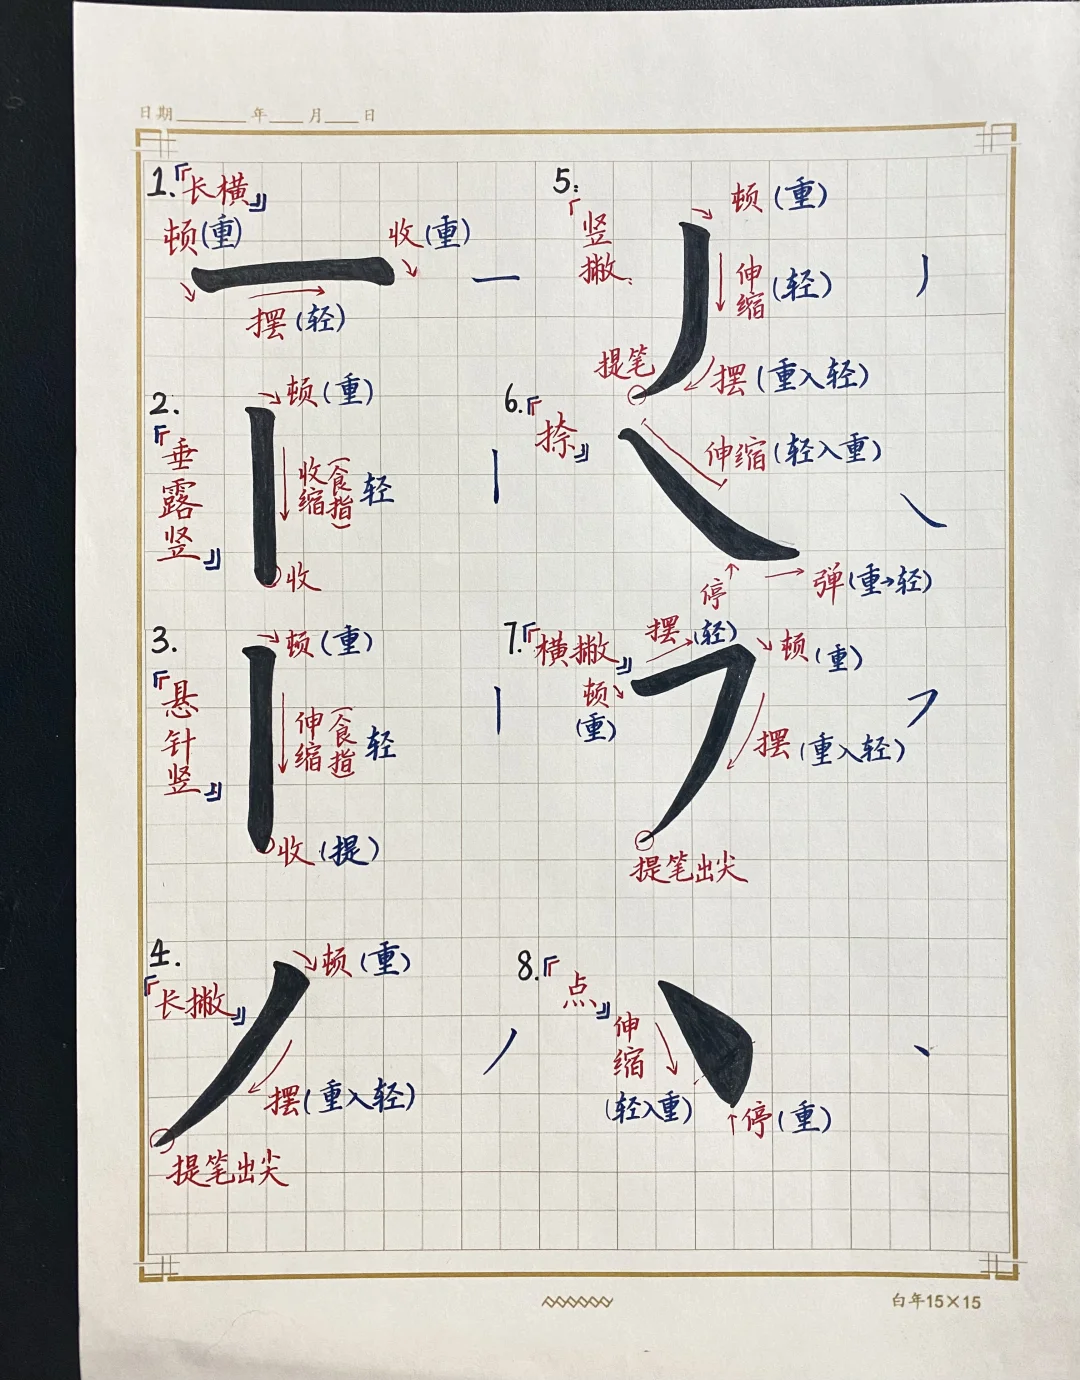 日期 年 月 日
1.『长横』
顿(重)
收(重)
摆(轻)
2.
『垂露竖』
顿(重)
收缩(食指)轻
收
3.
『悬针竖』
顿(重)
伸缩(食指)轻
收(提)
4.
『长撇』
顿(重)
摆(重入轻)
提笔出尖
5:
『竖撇
顿(重)
伸缩(轻)
提笔
摆(重入轻)
6.『捺』
伸缩(轻入重)
停
弹(重→轻)
7.『横撇』
顿(重)
摆(轻)
顿(重)
摆(重入轻)
提笔出尖
8.『点』
伸缩(轻入重)
停(重)
白年15×15